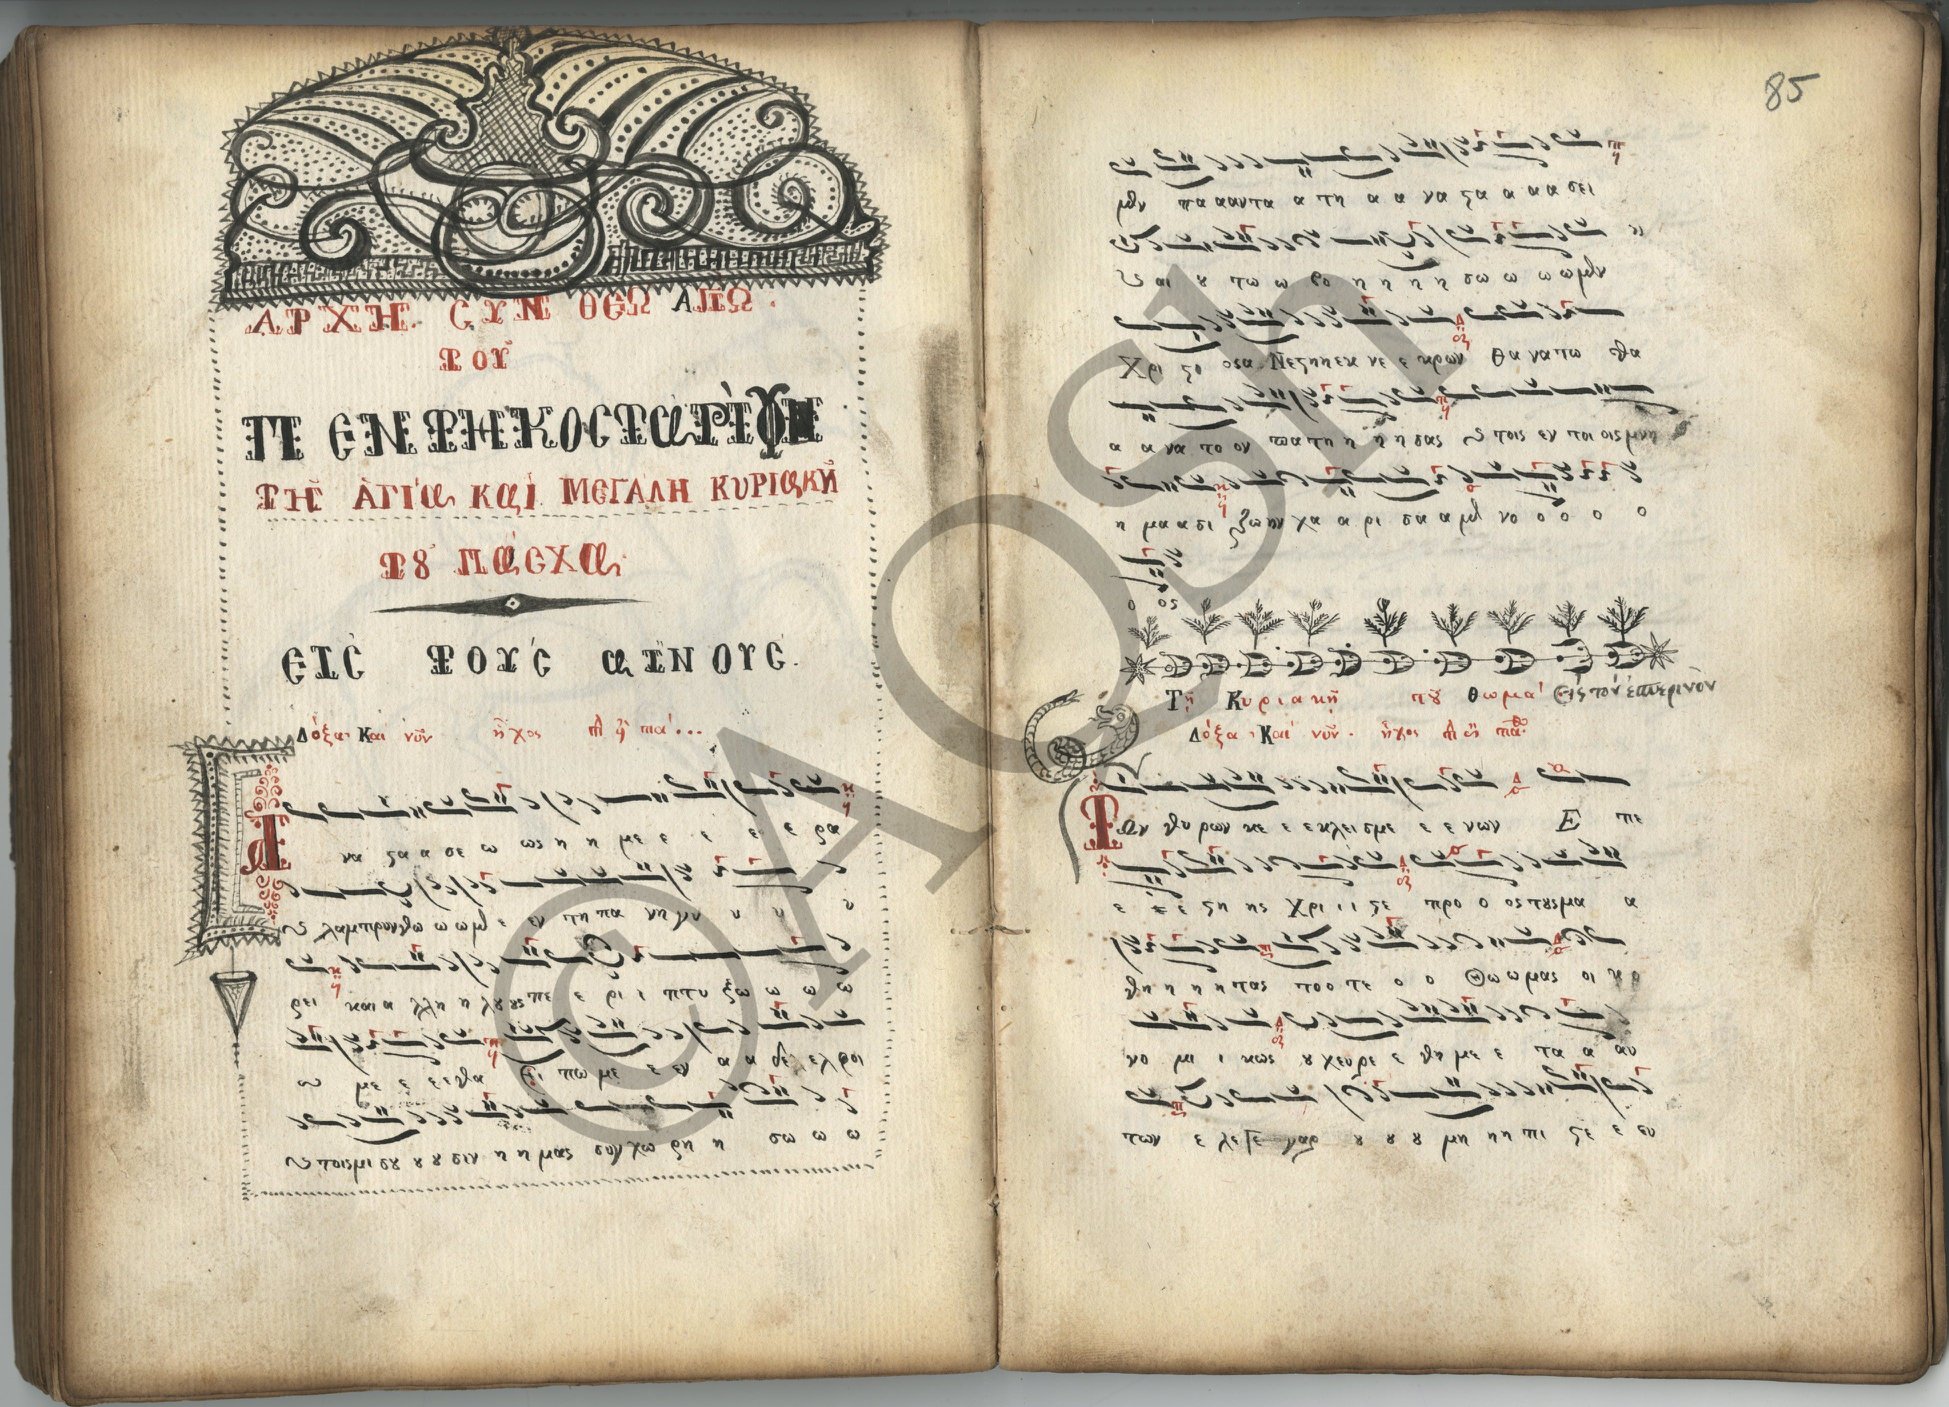 ΑΡΧΗ ΣΥΝ ΘΕΩ ΑΓΙΩ.
ΤΟΥ͂
ΠΕΝΤΗΚΟΣΤΑΡΙΟΥ
ΤΗ͂ ἉΓΊΑ ΚΑῚ ΜΕΓΑΛΗ ΚΥΡΙΑΚΗ͂
ΤΟΥ͂ ΠΆΣΧΑ.
ΕΙΣ ΤΟΥΣ ΑΙΝΟΥΣ.
Δόξα Καὶ νῦν ἦχος πλ
να ςα α σε ω ως η η με ε ε ε ε ρα
λαμπρυνθω ω ω μθ ε εν τη πα νη γυ υ υ υ
ρει και α λλη η λους πε ε ρι ι πτυ ξω ω ω ω
με ε ε ε θα Ει πω με ε εν α α δε ε ελφοι
τοις μι σου ου ου σιν η η μας συγ χω ρη η σω ω ω
85
μθν πα ααντα α τη α α να ςα α α α σει
και ου τω ω βο η η η η σω ω ω ω μθν
Χρι ςο ος α Νεςη η εκ νε ε κρων θα νατω θα
α α να το ον πατη η η η σας τοις εν τοι οις μνη
η μα α σι ζωην χα α ρι σα α με νο ο ο ο ο
ο ος
Τῇ Κυριακῇ τοῦ Θωμά Εἰς τὸν ἑσπερινὸν
Δόξα Καὶ νῦν. ἦχος πλ
Των θυ ρων κε ε εκλεισμε ε ε νων Ε πε
ε ε ε ςη ης Χρι ι ι ςε προ ο ος τους μα α
θη η η η τας τοο τε ο ο Θω ω μας οι κο
νο μι ι κως ου χευρε ε θη με ε τα α αυ
των ε λεγε γαρ ου ου ου μη η η πι ςε ε ευ
©AOSn